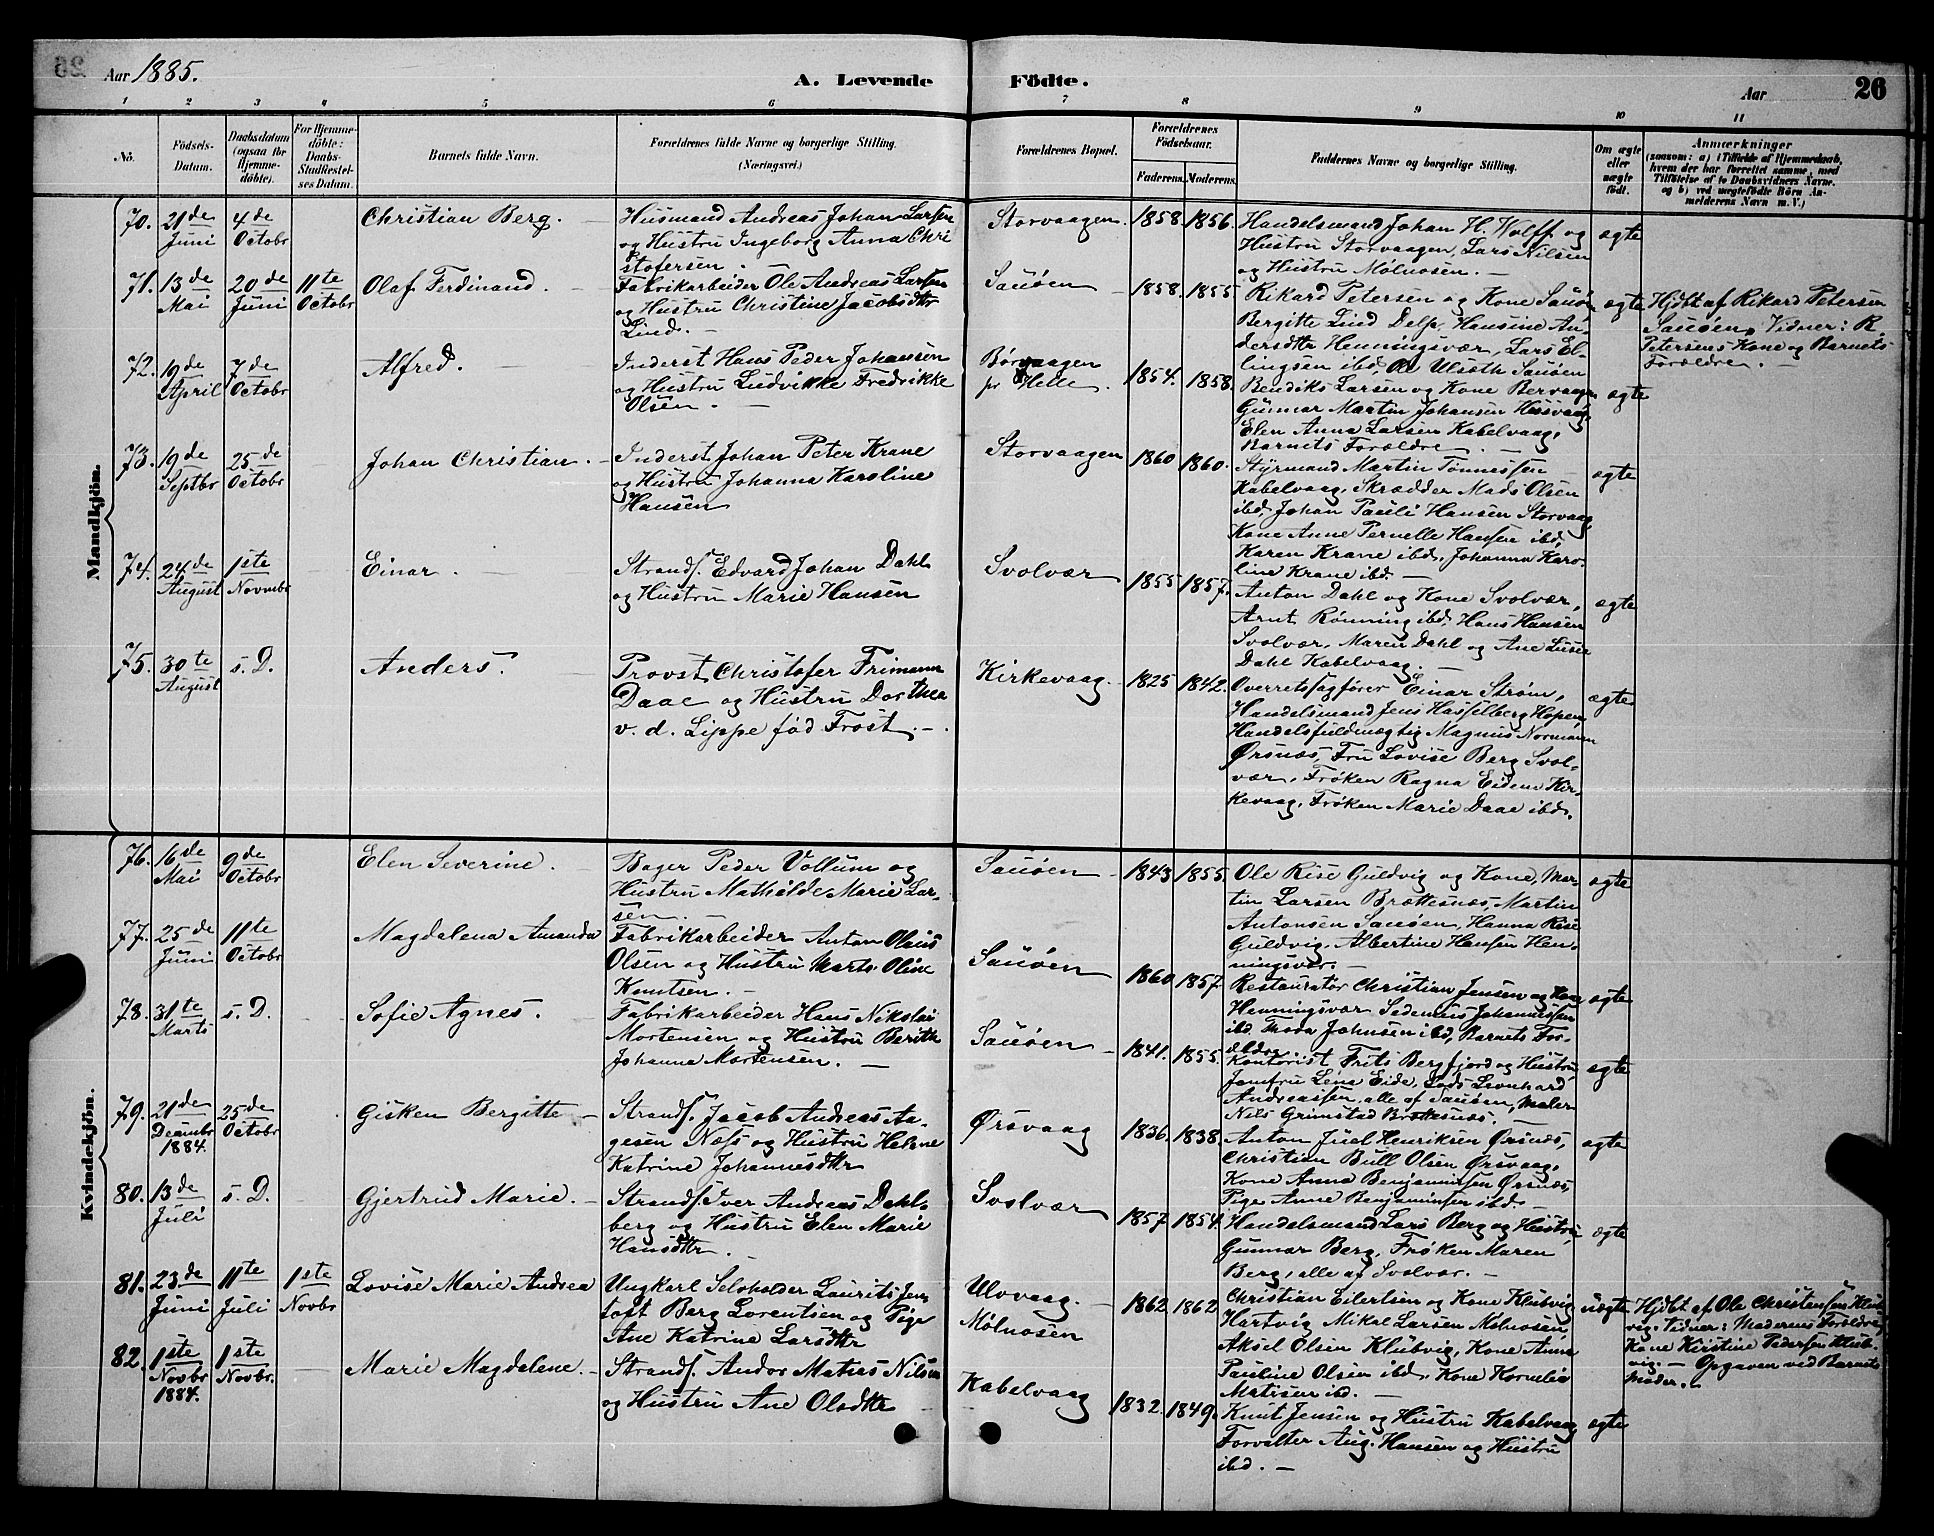 Aar 1885.
A. Levende Födte.
Aar
26
1 2 3 4 5 6 7 8 9 10 11
No.
Födsels-Datum.
Daabsdatum (ogsaa for Hjemme-döbte).
For Hjemme-döbte: Daabs-Stadfæstel-ses Datum.
Barnets fulde Navn.
Forældrenes fulde Navne og borgerlige Stilling. (Næringsvei.)
Forældrenes Bopæl.
Forældrenes Födselsaar.
Faderens. Moderens.
Faddernes Navne og borgerlige Stilling.
Om ægte eller uægte födt.
Anmærkninger
(saasom: a) i Tilfælde af Hjemmedaab, hvem der har forrettet samme, med Tilföielse af to Daabsvidners Navne, og b) ved uægtefödte Börn An-melderens Navn m. V.)
Mandkjön.
70. 21de Juni 4de Octobr Christian Berg.
Husmand Andreas Johan Larsen
og Hustru Ingeborg Anna Chri
stofersen.
Storvaagen 1858 1856.
Handelsmand Johan H. Wolff og
Hustru Storvaagen, Lars Nilsen
og Hustru Mølnosen.
ægte
71. 13de Mai 20de Juni 11te Octobr Olaf Ferdinand.
Fabrikarbeider Ole Andreas Larsen
og Hustru Christine Jacobsdtr
Lind.
Sauøen 1858. 1855.
Rikard Petersen og Kone Sauøen
Bergitte Lind Delp, Hansine An-
dersdtr Henningsvær, Lars El-
lingsen ibd, Ole Ulseth Sauøen
ægte
Hjdbt af Rikard Petersen
Sauøen. Vidner: R.
Petersens Kone og Barnets
Forældre.
72. 19de April 7de Octobr Alfred.
Inderst Hans Peder Johansen
og Hustru Ludvikke Fredrikke
Olsen.
Børvaagen
pr Helle. 1854. 1858.
Bendiks Larsen og Kone Børvaagen
Gunnar Martin Johansen
Elen Anna Larsen Kabelvaag,
Barnets Forældre
ægte
73. 19de Septbr 25de Octobr Johan Christian.
Inderst Johan Peter Krane
og Hustru Johanna Karoline
Hansen
Storvaagen 1860 1860.
Styrmand Martin Tønnessen
Kabelvaag, Skrædder Mads Olsen
ibd, Johan Pauli Hansen Storvaag,
Kone Anne Pernelle Hansen ibd,
Karen Krane ibd, Johanna Karo-
line Krane ibd.
ægte
74. 24de August 1ste Novmbr Einar.
Strands. Edvard Johan Dahl
og Hustru Marie Hansen
Svolvær 1855 1857.
Anton Dahl og Kone Svolvær,
Arnt Rønning ibd, Hans Hansen
Svolvær, Maren Dahl og Ane Lusie
Dahl Kabelvaag.
ægte
75. 30te August s. D. Anders.
Provst Christofer Frimann
Daae og Hustru Dorthea
v. d. Lippe fød Frost.
Kirkevaag. 1825 1842.
Overretssagfører Einar Strøm,
Handelsmand Jens Hasselberg Hopen,
Handelsfuldmægtig Magnus Normann
Ørsnæs, Fru Lovise Berg Svol-
vær, Frøken Ragna Eidem Kir-
kevaag, Frøken Marie Daae ibd.
ægte
Kvindekjön.
76. 16de Mai 9de Octobr Elen Severine.
Bager Peder Vollum og
Hustru Mathilde Marie Lar-
sen.
Sauøen 1843 1855
Ole Rise Guldvig og Kone, Mar-
tin Larsen Brettesnæs, Martin
Antonsen Sauøen, Hanna Rise
Guldvig, Albertine Hansen Hen-
ningsvær.
ægte
77. 25de Juni 11te Octobr Magdalena Amanda
Fabrikarbeider Anton Olaus
Olsen og Hustru Marta Oline
Knutsen.
Sauøen 1860 1857
Restauratør Christian Jensen og Kone
Henningsvær Sedenius Johannessen
ibd. Thoda Johnsen ibd, Barnets For-
ældre
ægte
78. 31te Marts s. D. Sofie Agnes.
Fabrikarbeider Hans Nikolai
Mortensen og Hustru Berith
Johanna Mortensen.
Sauøen 1841. 1855.
Kontorist Frits Bergfjord og Hustru,
Jomfru Lena Eide, Lods Leonhard
Andreassen, alle af Sauøen, Maler
Nils Grimstad Brettesnæs.
ægte
79. 21de Decmbr 1884. 25de Octobr Gisken Bergitte
Strands. Jacob Andreas Aa-
gesen Næss og Hustru Helene
Katrine Johannesdtr
Ørsvaag 1836. 1838.
Anton Juel Henriksen Ørsnæs,
Christian Bull Olsen Ørsvaag,
Kone Anna Benjaminsen Ørsnæs,
Pige Anne Benjaminsen ibd.
ægte
80. 13de Juli s. D. Gjertrud Marie.
Strands Iver Andreas Dahl-
berg og Hustru Elen Marie
Hansdtr.
Svolvær 1857 1854.
Handelsmand Lars Berg og Hustru,
Gunnar Berg, Frøken Maren
Berg, alle af Svolvær.
ægte
81. 23de Juni 11te Juli 1ste Novbr Lovise Marie Andrea
Ungkarl Selvholder Laurits Jen-
toft Berg Lorentsen og Pige
Ane Katrine Larsdtr
Ulvaag.
Mølnosen 1862 1862
Christian Eilertsen og Kone Klubvig
Hartvig Mikal Larsen Mølnosen,
Aksel Olsen Klubvig, Kone Anna
Pauline Olsen ibd, Kone Kornelia
Matisen ibd.
uægte
Hjdbt af Ole Christensen Klub-
vig. Vidner: Moderens Forældre,
Kone Kirstine Pedersen Klub-
vig. Opgaven ved Barnets
Moder.
82. 1ste Novbr 1884. 1ste Novbr. Marie Magdalene.
Strands. Andor Matias Nilsen
og Hustru Ane Olsdtr
Kabelvaag 1832. 1849.
Knut Jensen og Hustru Kabelvaag,
Forvalter Aug. Hansen og Hustru
ibd.
ægte